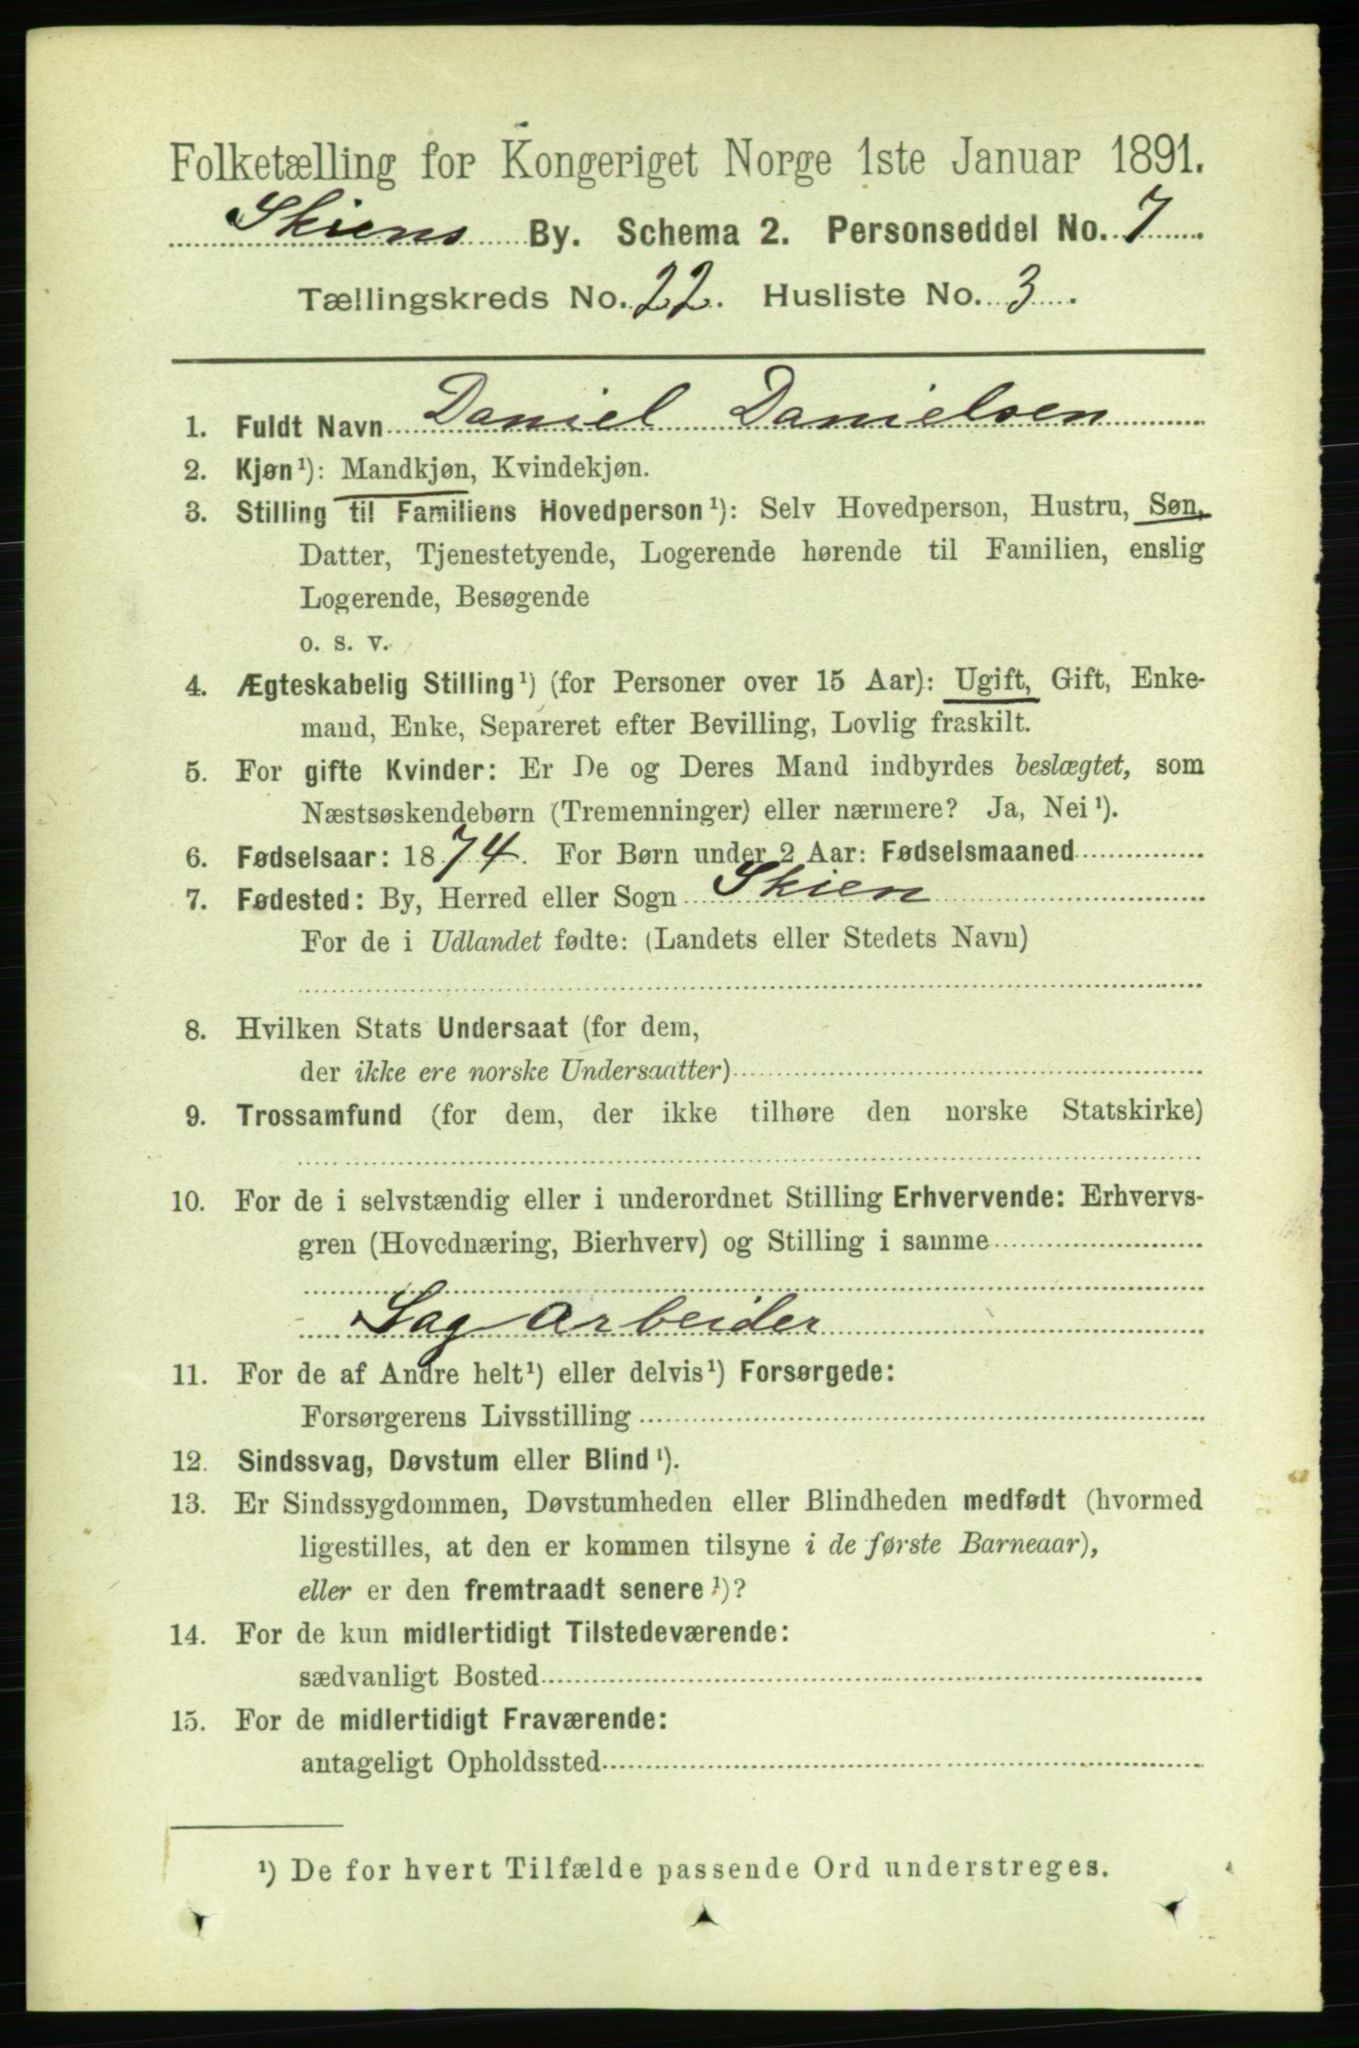 Folketælling for Kongeriget Norge 1ste Januar 1891.
Skiens By. Schema 2. Personseddel No. 7.
Tællingskreds No. 22. Husliste No. 3.
1. Fuldt Navn Daniel Danielsen
2. Kjøn¹): Mandkjøn, Kvindekjøn.
3. Stilling til Familiens Hovedperson¹): Selv Hovedperson, Hustru, Søn,
Datter, Tjenestetyende, Logerende hørende til Familien, enslig
Logerende, Besøgende
o. s. v.
4. Ægteskabelig Stilling¹) (for Personer over 15 Aar): Ugift, Gift, Enke-
mand, Enke, Separeret efter Bevilling, Lovlig fraskilt.
5. For gifte Kvinder: Er De og Deres Mand indbyrdes beslægtet, som
Næstsøskendebørn (Tremenninger) eller nærmere? Ja, Nei¹).
6. Fødselsaar: 1874. For Børn under 2 Aar: Fødselsmaaned
7. Fødested: By, Herred eller Sogn Skien
For de i Udlandet fødte: (Landets eller Stedets Navn)
8. Hvilken Stats Undersaat (for dem,
der ikke ere norske Undersaatter)
9. Trossamfund (for dem, der ikke tilhøre den norske Statskirke)
10. For de i selvstændig eller i underordnet Stilling Erhvervende: Erhvervs-
gren (Hovednæring, Bierhverv) og Stilling i samme
Sag arbeider
11. For de af Andre helt¹) eller delvis¹) Forsørgede:
Forsørgerens Livsstilling
12. Sindssvag, Døvstum eller Blind¹).
13. Er Sindssygdommen, Døvstumheden eller Blindheden medfødt (hvormed
ligestilles, at den er kommen tilsyne i de første Barneaar),
eller er den fremtraadt senere¹)?
14. For de kun midlertidigt Tilstedeværende:
sædvanligt Bosted
15. For de midlertidigt Fraværende:
antageligt Opholdssted
¹) De for hvert Tilfælde passende Ord understreges.